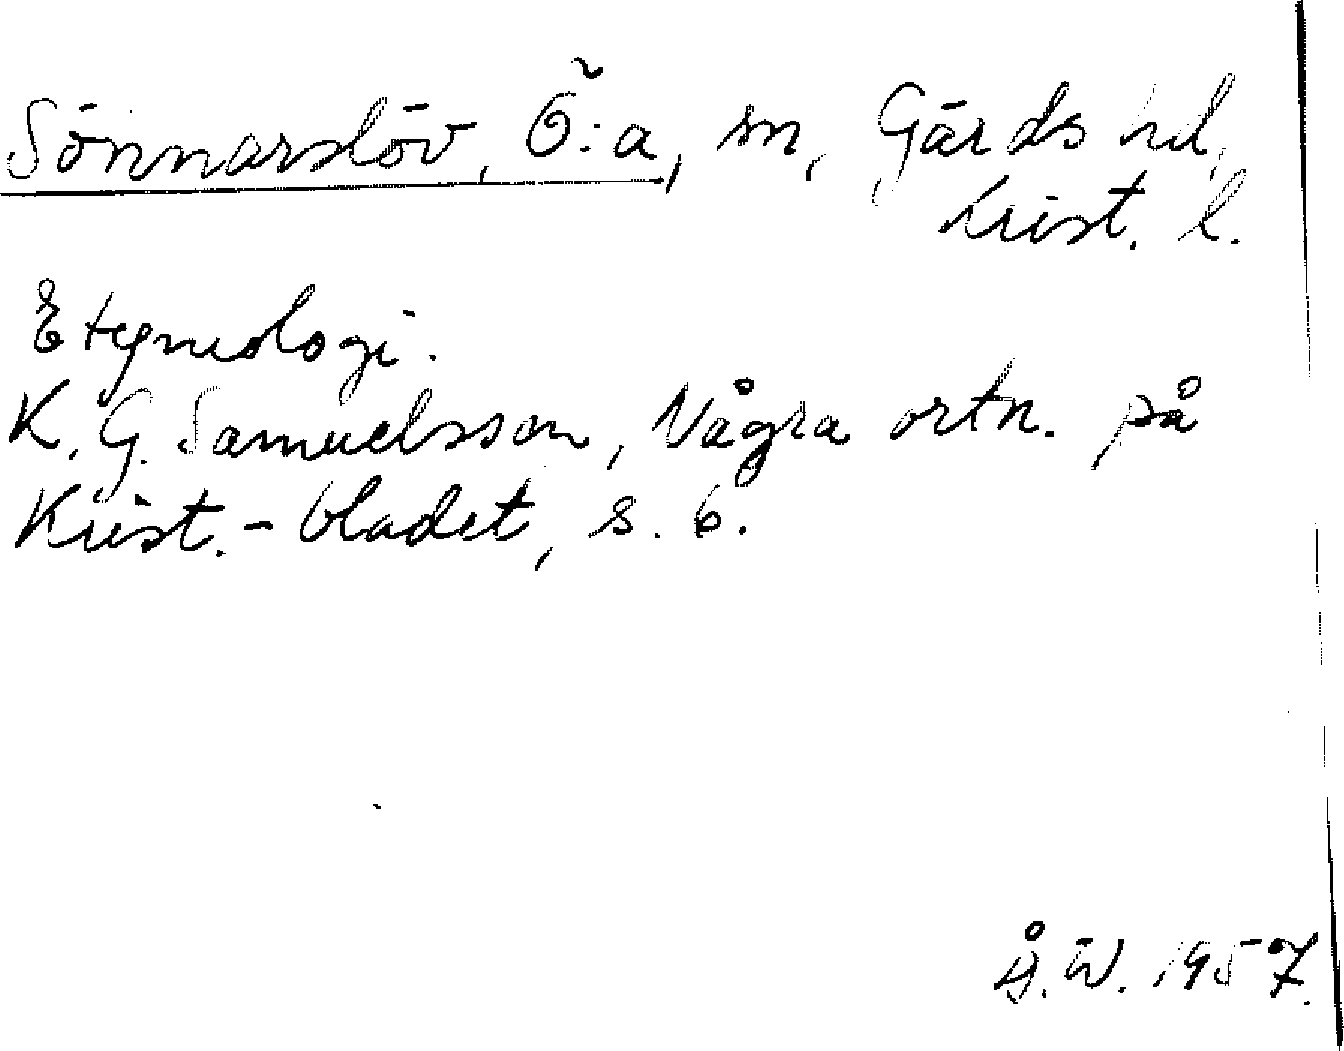 Sönnarslöv, Ö:a, sn, Gärds hd,
Krist. l.
Etymologi.
K. G. Samuelsson, Några ortn. på
Krist.-bladet, s. 6.
Å. W. 1957.